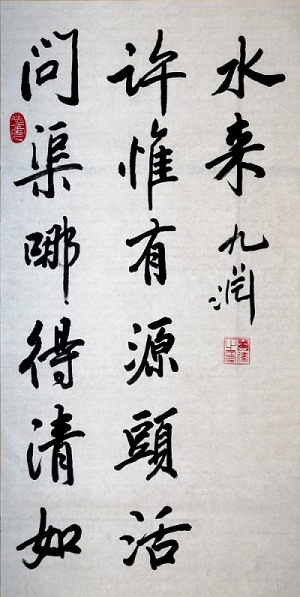 问渠哪得清如
许惟有源頭活
水来 九